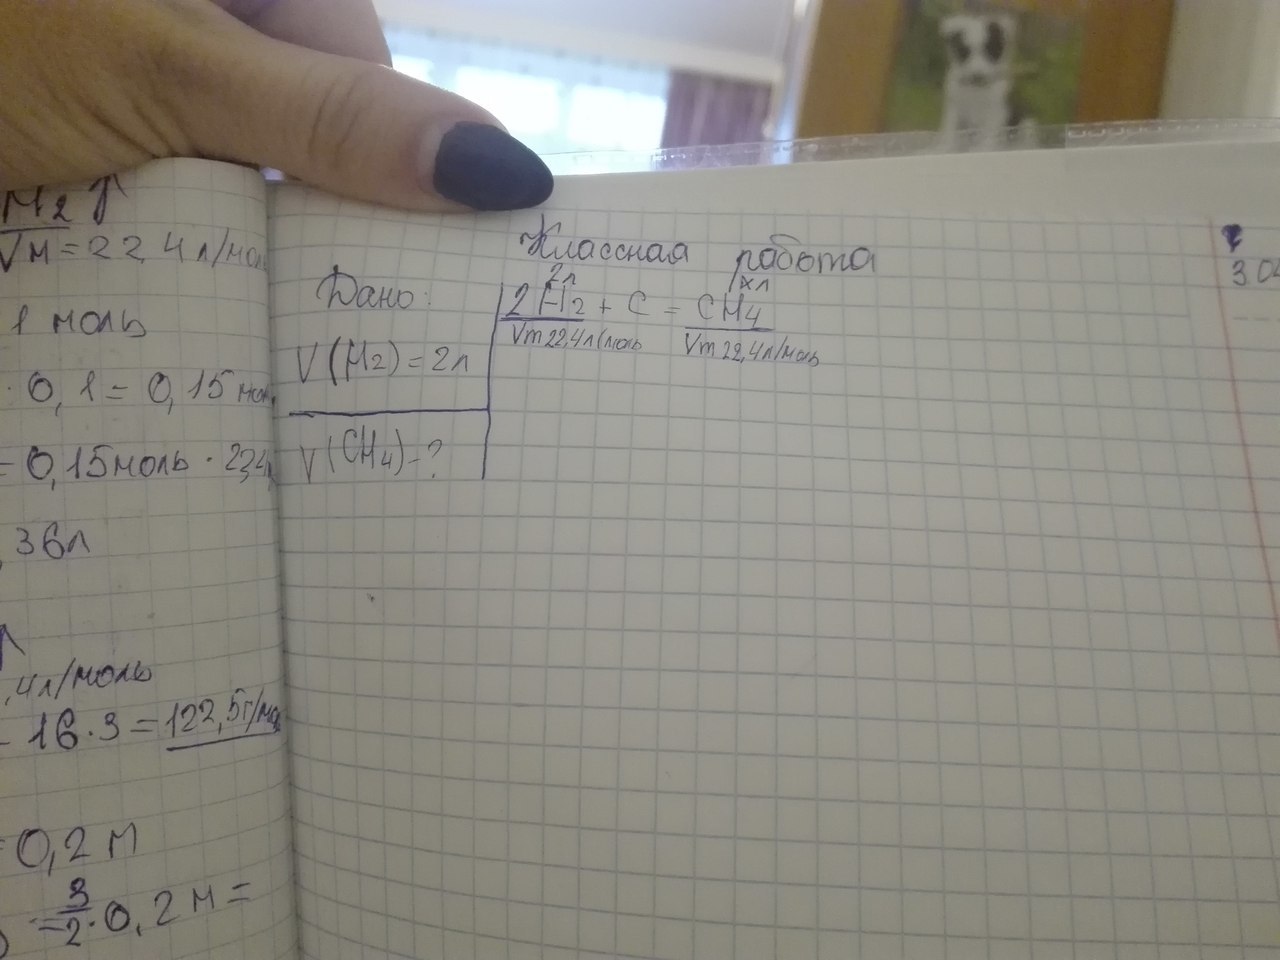 M₂ ↑
Vм = 22,4 л/мол
1 моль
· 0,1 = 0,15 мол
= 0,15 моль · 22,4
,36л
,4л/моль
16·3 = 122,5г/мо
= 0,2 м
= 3/2 · 0,2 м =
Классная работа
Дано:
V(H₂) = 2л
V(CH₄) - ?
2л xл
2H₂ + C = CH₄
Vm 22,4л/моль Vm 22,4л/моль